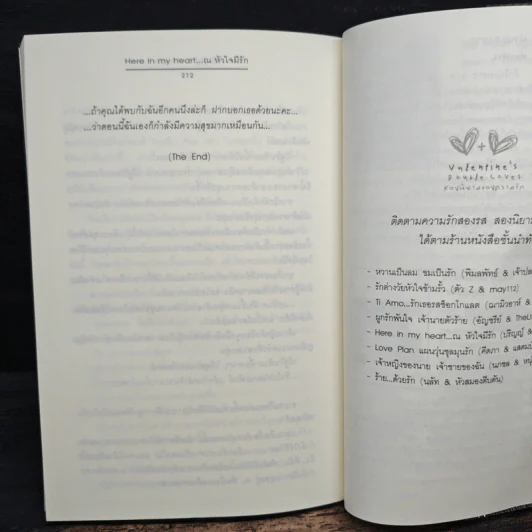 Here in my heart...ณ หัวใจมีรัก
212
...ถ้าคุณได้พบกับฉันอีกคนนึงล่ะก็ ฝากบอกเธอด้วยนะคะ...
...ว่าตอนนี้ฉันเองก็กำลังมีความสุขมากเหมือนกัน...
(The End)
+
Valentine's
Double Loves
ติดตามความรักสองรส สองนิยาม
ได้ตามร้านหนังสือชั้นนำทั
- หวานเป็นลม ขมเป็นรัก (พิมลพัทธ์ & เจ้าปล
- รักต่างวัยหัวใจข้ามรั้ว (ตัว Z & may112)
- Ti Amo...รักเธอรสช็อกโกแลต (ฌามิวอาห์ &
- ผูกรักพันใจ เจ้านายตัวร้าย (อัญชรีย์ & theLi
- Here in my heart...ณ หัวใจมีรัก (ปริญญ์ &
- Love Plan แผนวุ่นชุลมุนรัก (คีตภา & แสตมป์
- เจ้าหญิงของนาย เจ้าชายของฉัน (นภชล & หนู
- ร้าย...ด้วยรัก (นลัท & หัวสมองตีบตัน)